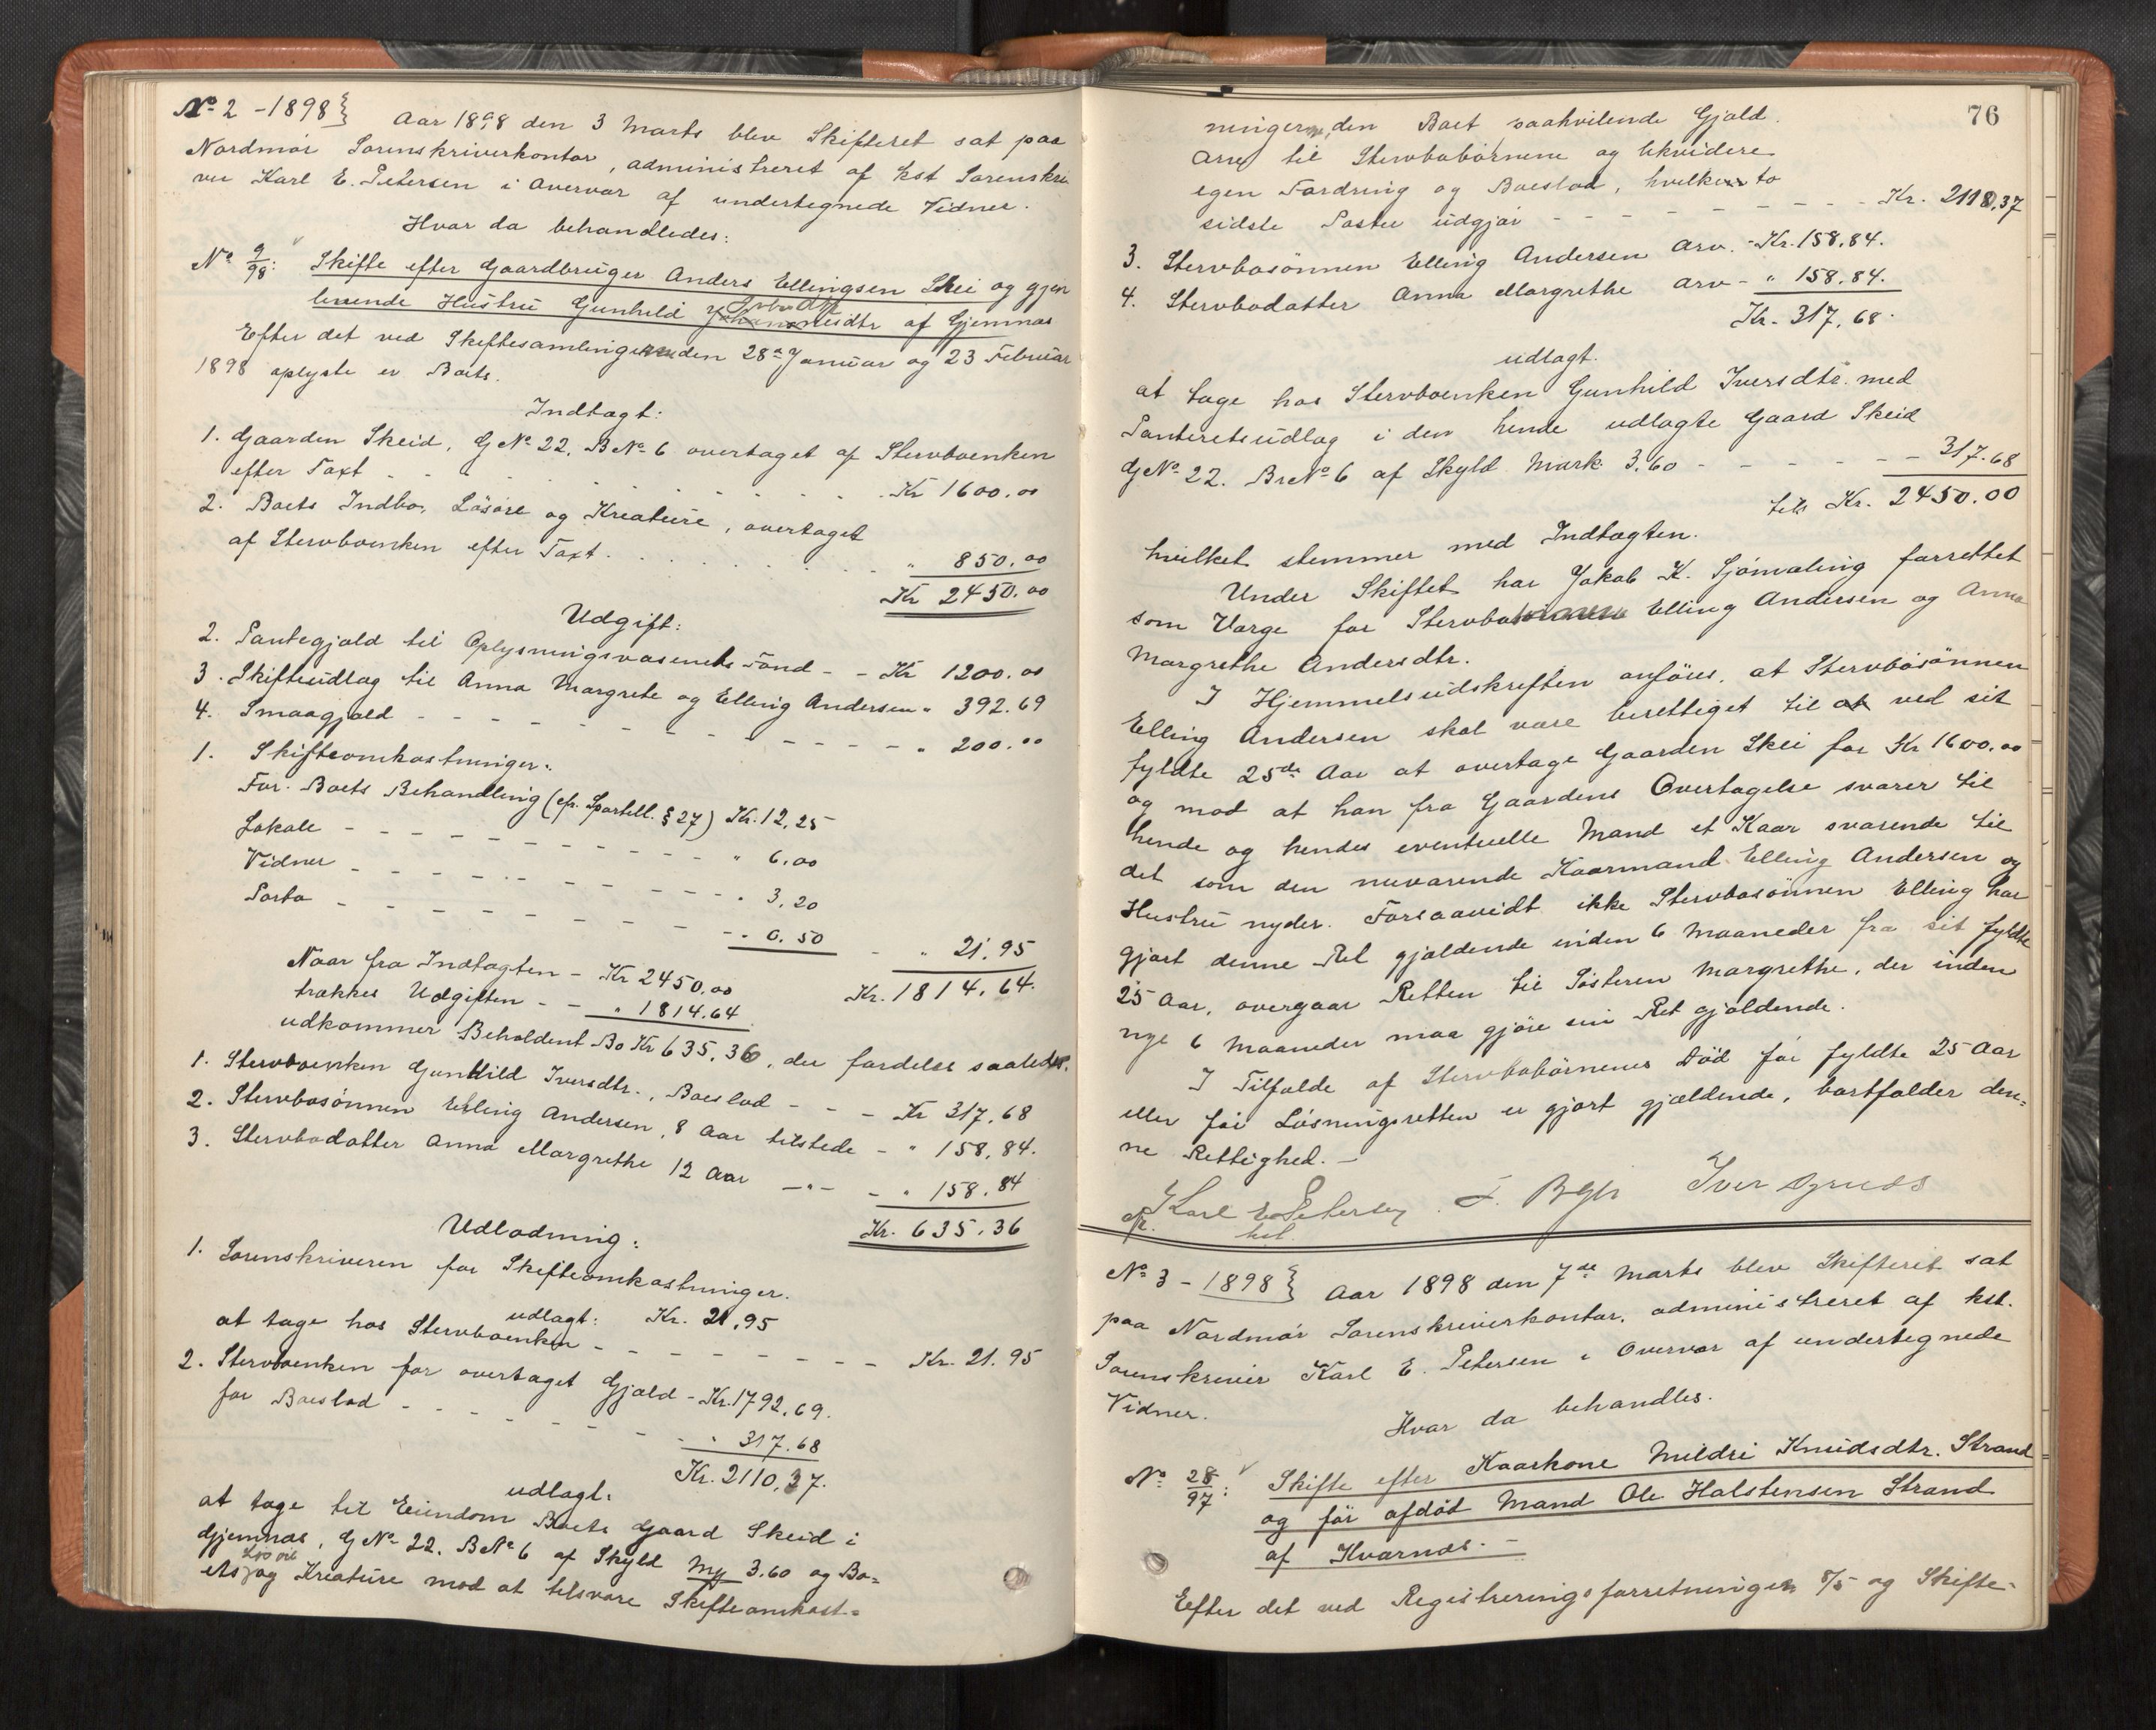 No 2 - 1898} Aar 1898 den 3 Marts blev Skifteret sat paa
Nordmør Sorenskriverkontor, administreret af kst Sorenskri
ver Karl E. Petersen i Overvær af undertegnede Vidner.
Hvor da behandledes:
No 9/98: Skifte efter Gaardbruger Anders Ellingsen Skei og gjen
levende Hustru Gunhild Iversdtr af Gjemnæs
Efter det ved Skiftesamlingerne den 28de Januar og 23 Februar
1898 oplyste er Boets.
Indtægt:
1. Gaarden Skeid, GNo 22, BNo 6 overtaget af Stervboenken
efter Taxt - - Kr 1600.00
2. Boets Indbo, Løsøre og Kreature, overtaget
af Stervboenken efter Taxt. " 850.00
Kr 2450.00
Udgift:
2. Pantegjæld til Oplysningsvæsenets Fond - - Kr 1200.00
3. Skifteudlæg til Anna Margrete og Elling Andersen " 392.69
4. Smaagjæld - - - " 200.00
1. Skifteomkostninger:
For Boets Behandling (cfr. Sportell. § 27) Kr. 12,25
Lokale - - - " 6.00
Vidner - - - " 3.20
Porto - - - " 0.50 - " 21.95
Kr. 1814.64.
Naar fra Indtægten - Kr 2450.00
trækkes Udgiften - - " 1814.64
udkommer Beholdent Bo Kr 635.36, der fordeles saaledes.
1. Stervboenken Gunhild Iversdtr., Boeslod - - - Kr 317.68
2. Stervbosønnen Elling Andersen, 8 Aar tilstede - " 158.84.
3. Stervbodatter Anna Margrethe 12 Aar —"— - " 158.84
Kr. 635.36
Udlodning:
1. Sorenskriveren for Skifteomkostninger.
udlagt: Kr. 21.95
at tage hos Stervboenken - - - Kr. 21.95
2. Stervboenken for overtaget Gjæld - Kr. 1792.69.
for Boeslod - - - " 317.68
Kr. 2110.37.
udlagt:
at tage til Eiendom Boets Gaard Skeid i
Gjemnæs, GNo 22. BNo 6 af Skyld My 3.60 og Bo-
ets Løsøre og Kreature mod at tilsvare Skifteomkost-
76
ningerne, den Boet paahvilende Gjæld.
Arv til Stervbobørnene og likvidere
egen Fordring og Boeslod, hvilke to
sidste Poster udgjør - - - Kr. 2110,37
3. Stervbosønnen Elling Andersen Arv. - Kr. 158.84.
4. Stervbodatter Anna Margrethe Arv - " 158.84.
Kr. 317,68.
udlagt.
at tage hos Stervboenken Gunhild Iversdtr. med
Panteretsudlæg i den hende udlagte Gaard Skeid
GNo 22. BrNo 6 af Skyld Mark 3.60 - - - 317.68
tils Kr. 2450.00
hvilket stemmer med Indtægten.
Under Skiftet har Jakob K. Sjømæling forrettet
som Værge for Elling Andersen og Anna
Margrethe Andersdtr.
I Hjemmelsudskriften anføres, at Stervbosønnen
Elling Andersen skal være berettiget til at ved sit
fyldte 25de Aar at overtage Gaarden Skei for Kr 1600.00
og mod at han fra Gaardens Overtagelse svarer til
hende og hendes eventuelle Mand et Kaar svarende til
det som den nuværende Kaarmand Elling Andersen og
Hustru nyder. Forsaavidt ikke Stervbosønnen Elling har
gjort denne Ret gjældende inden 6 Maaneder fra sit fyldte
25 Aar, overgaar Retten til Søsteren Margrethe, der inden
nye 6 Maaneder maa gjøre sin Ret gjældende.
I Tilfælde af Stervbobørnenes Død før fyldte 25 Aar
eller før Løsningsretten er gjort gjældende, bortfalder den-
ne Rettighed. —
Karl E Petersen Iver
kst.
No 3 - 1898} Aar 1898 den 7de Marts blev Skifteret sat
paa Nordmør Sorenskriverkontor, administreret af kst.
Sorenskriver Karl E. Petersen i Overvær af undertegnede
Vidner.
Hvor da behandles.
No 28/97: Skifte efter Kaarkone Mildri Knudsdtr. Strand
og før afdød Mand Ole Halstensen Strand
af Kværnæs. -
Efter det ved Registreringsforretningen 8/5 og Skifte-